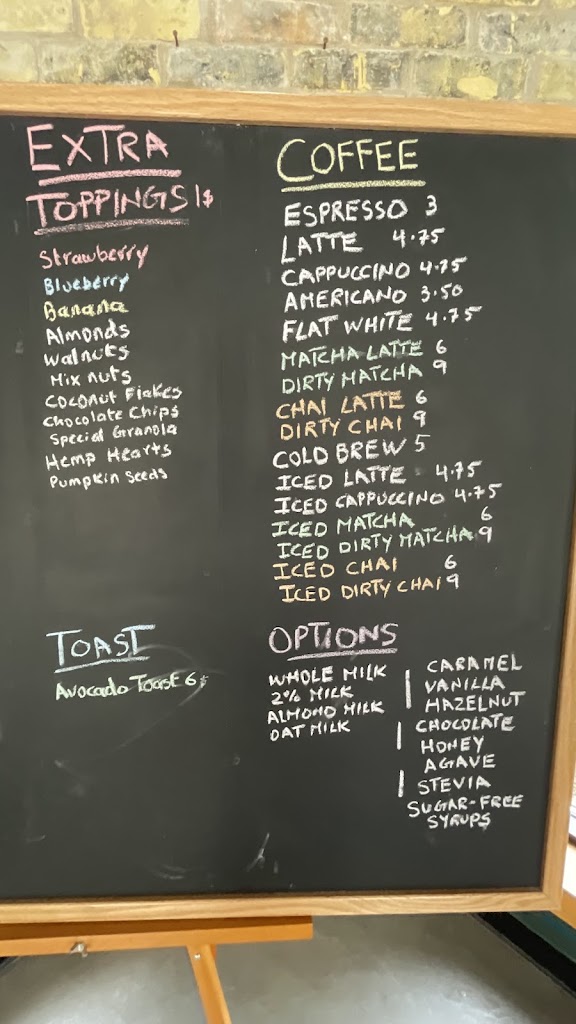 EXTRA
TOPPINGS 1$
Strawberry
Blueberry
Banana
Almonds
Walnuts
Mix nuts
Coconut Flakes
Chocolate Chips
Special Granola
Hemp Hearts
Pumpkin Seeds
TOAST
Avocado Toast 6$
COFFEE
ESPRESSO 3
LATTE 4.75
CAPPUCCINO 4.75
AMERICANO 3.50
FLAT WHITE 4.75
MATCHA LATTE 6
DIRTY MATCHA 9
CHAI LATTE 6
DIRTY CHAI 9
COLD BREW 5
ICED LATTE 4.75
ICED CAPPUCCINO 4.75
ICED MATCHA 6
ICED DIRTY MATCHA 9
ICED CHAI 6
ICED DIRTY CHAI 9
OPTIONS
WHOLE MILK
2% MILK
ALMOND MILK
OAT MILK
CARAMEL
VANILLA
HAZELNUT
CHOCOLATE
HONEY
AGAVE
STEVIA
SUGAR-FREE
SYRUPS